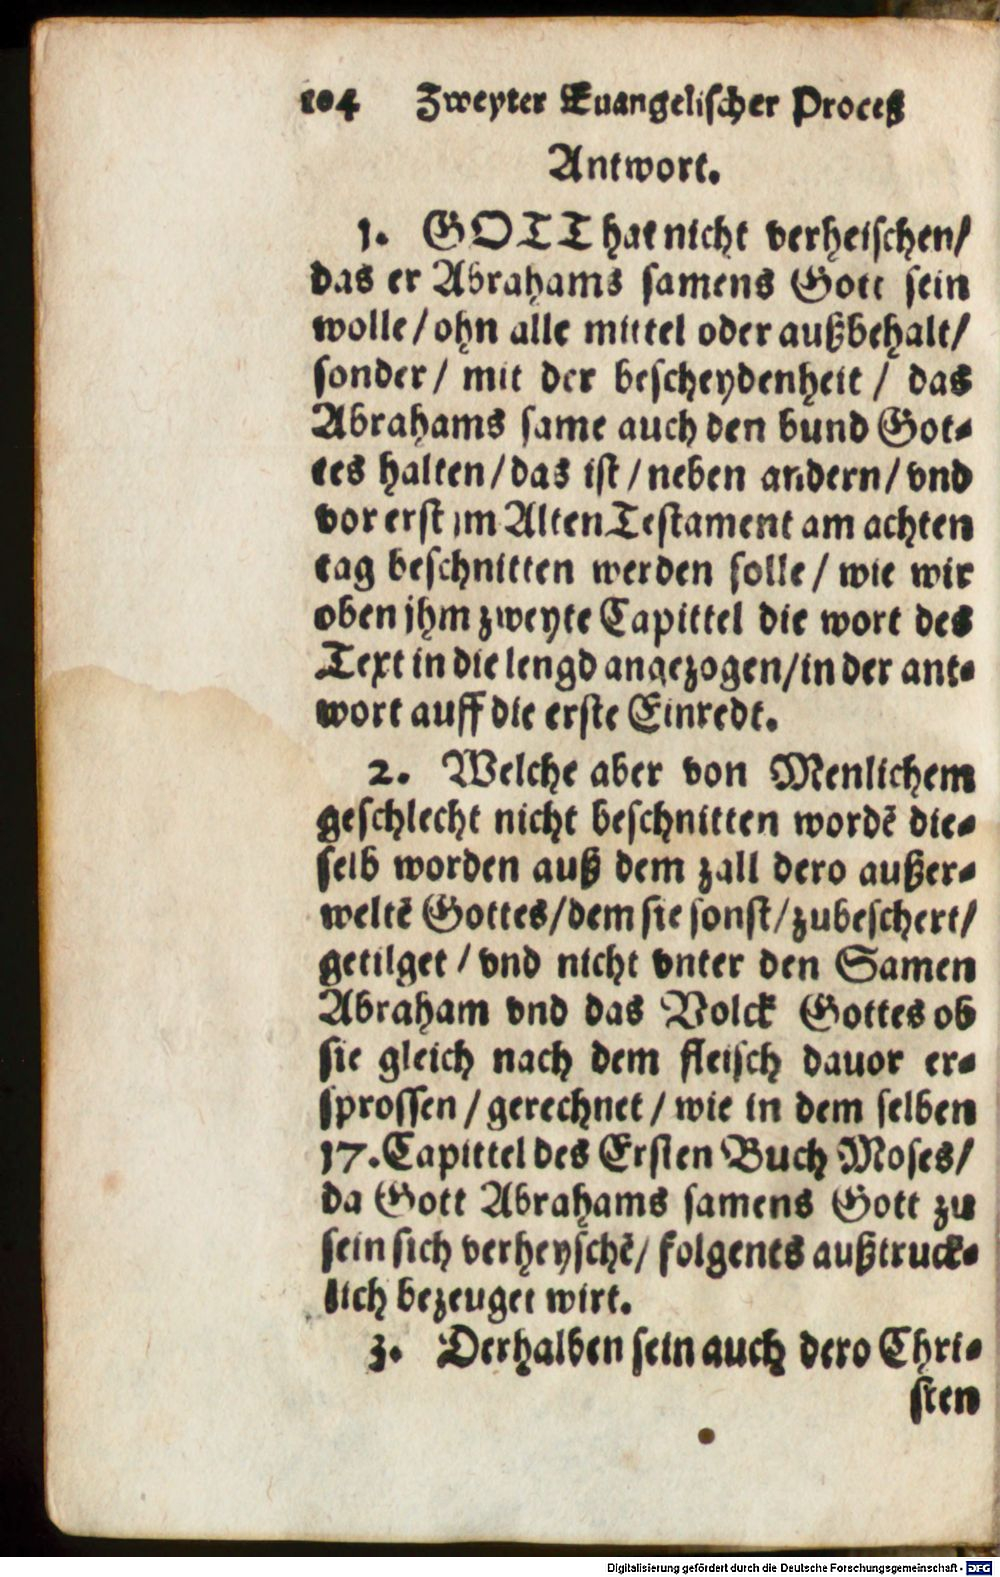 104 Zweyter Euangelischer Proceß
Antwort.
1. GOTT hat nicht verheischen/
das er Abrahams samens Gott sein
wolle/ohn alle mittel oder außbehalt/
sonder/ mit der bescheydenheit / das
Abrahams same auch den bund Got-
tes halten/das ist/neben andern/vnd
vor erst jm Alten Testament am achten
tag beschnitten werden solle/ wie wir
oben jhm zweyte Capittel die wort des
Text in die lengd angezogen/in der ant-
wort auff die erste Einredt.
2. Welche aber von Menlichem
geschlecht nicht beschnitten wordẽ die-
selb worden auß dem zall dero außer-
weltẽ Gottes/dem sie sonst/zubeschert/
getilget/vnd nicht vnter den Samen
Abraham vnd das Volck Gottes ob
sie gleich nach dem fleisch dauor er-
sprossen/gerechnet/wie in dem selben
17. Capittel des Ersten Buch Moses/
da Gott Abrahams samens Gott zu
sein sich verheyschẽ/ folgents außtruck-
lich bezeuget wirt.
3. Derhalben sein auch dero Chri-
sten
Digitalisierung gefördert durch die Deutsche Forschungsgemeinschaft - DFG